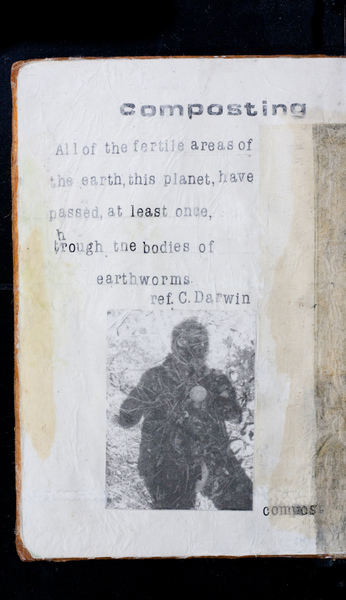 Composting
All of the fertile areas of
the earth, this planet, have
passed, at least once,
through the bodies of
earthworms.
ref. C. Darwin
compost